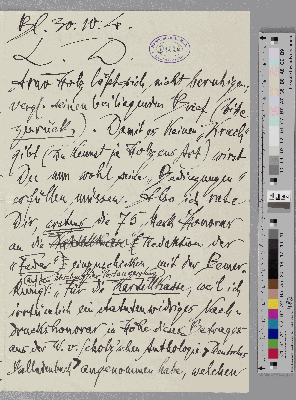 Bl. 30. 10. 4.
L. D.
Arno Holz läßt sich nicht beruhigen,
vergl. seinen beiliegenden Brief (bitte
zurück). Damit er keinen „Krach“
gibt (Du kennst ja Holzens Art) wirst
Du nun wohl seine „Bedingungen“
erfüllen müssen. Also ich rate
Dir, erstens die 75 Mark Honorar
an die Redaktion der
„Feder“ einzuschicken, mit der Bemer-
kung: für die Kartellkasse, weil ich
ein statutenwidriges Nach-
druckshonorar in Höhe dieses Betrages
aus der W. v. Scholz'schen Anthologie „Deutsches
Balladenbuch“ angenommen habe, welchen